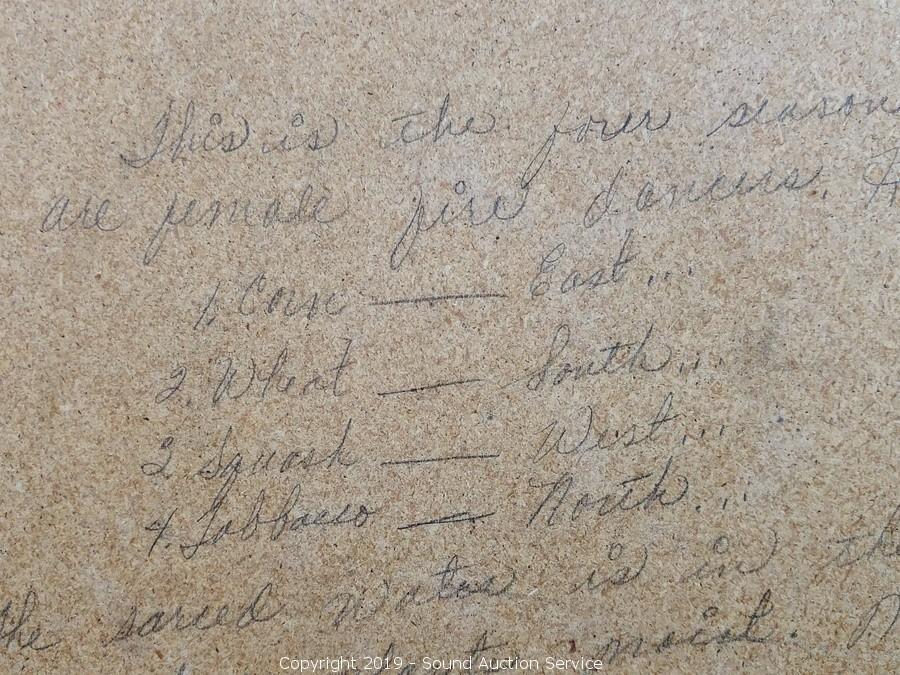 This is the four seasons
are female fire dancers.
1. Corn — East...
2. Wheat — South...
3. Squash — West...
4. Tobbacco — North...
the sared water is in the
moist.
Copyright 2019 - Sound Auction Service